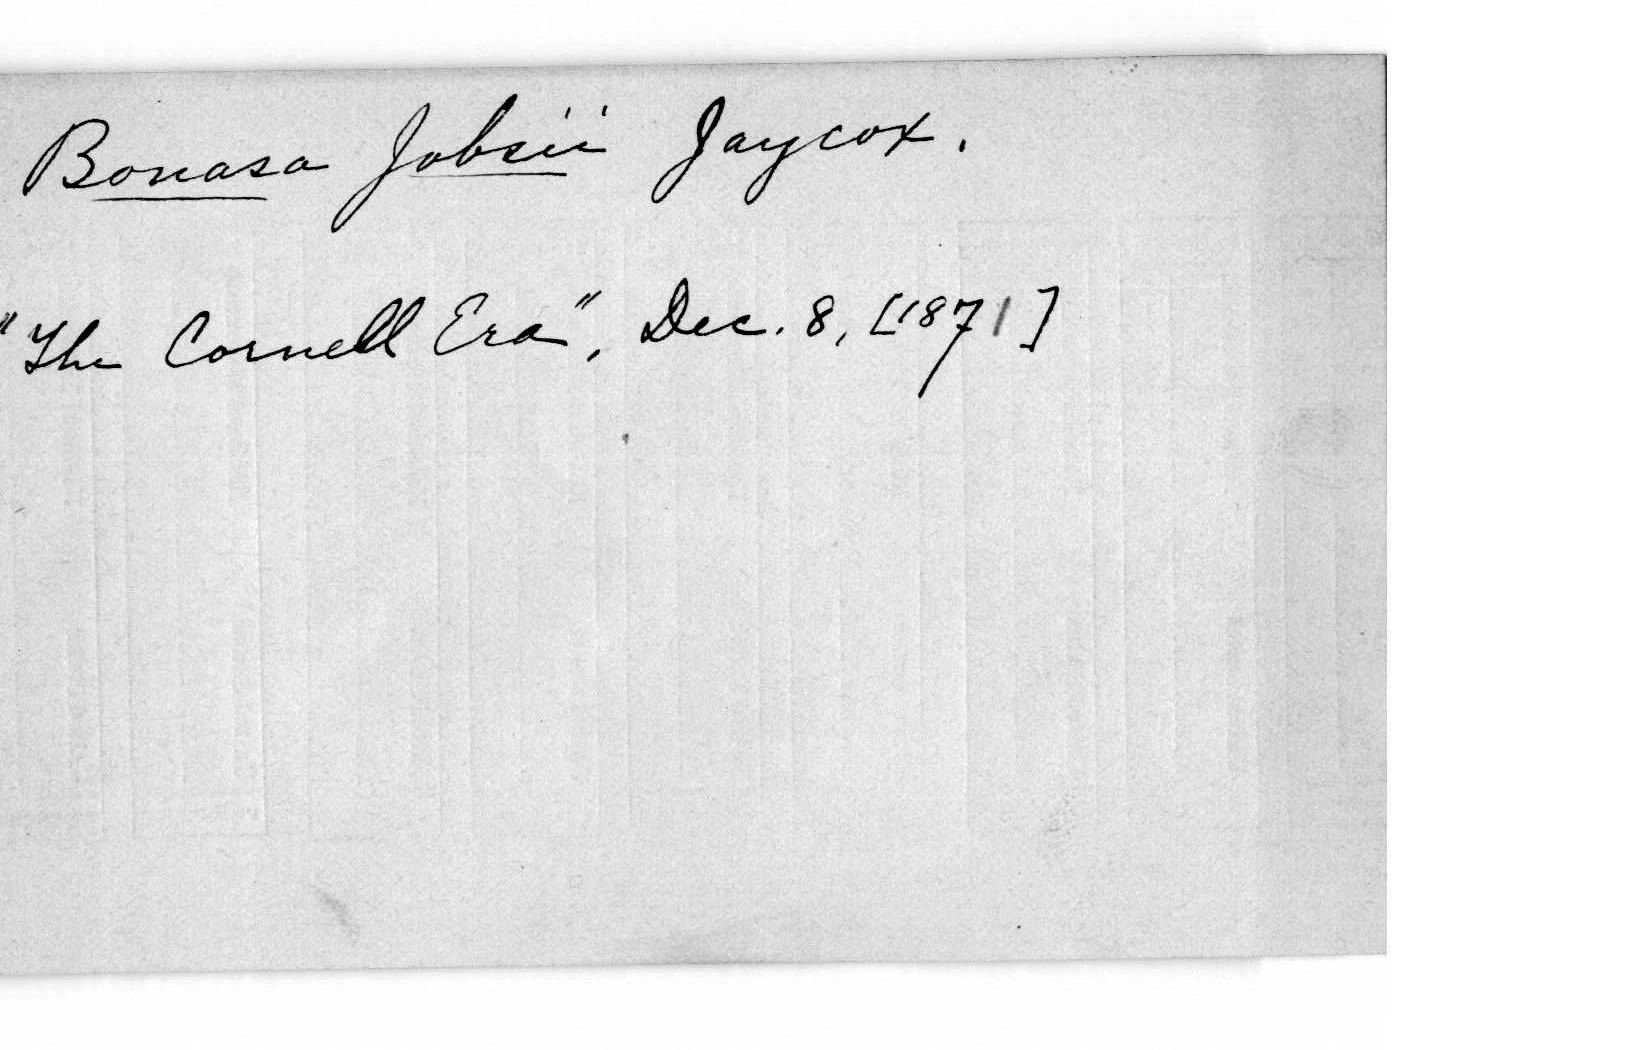 Bonasa Jobsii Jaycox.
"The Cornell Era", Dec. 8, [1871]